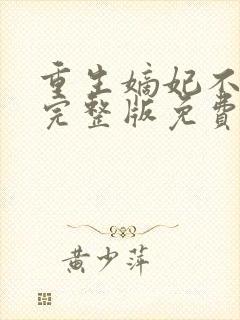 重生嫡妃不
完整版免费
黄少萍